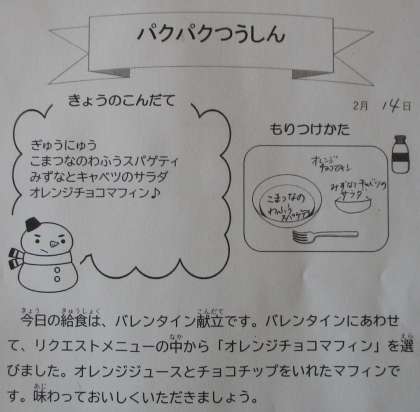 パクパクつうしん
きょうのこんだて
2月 14日
ぎゅうにゅう
こまつなのわふうスパゲティ
みずなとキャベツのサラダ
オレンジチョコマフィン♪
もりつけかた
オレンジ
チョコマフィン
みずなとキャベツの
サラダ
こまつなの
わふう
スパゲティ
今日の給食は、バレンタイン献立です。バレンタインにあわせ
て、リクエストメニューの中から「オレンジチョコマフィン」を選
びました。オレンジジュースとチョコチップをいれたマフィンで
す。味わっておいしくいただきましょう。